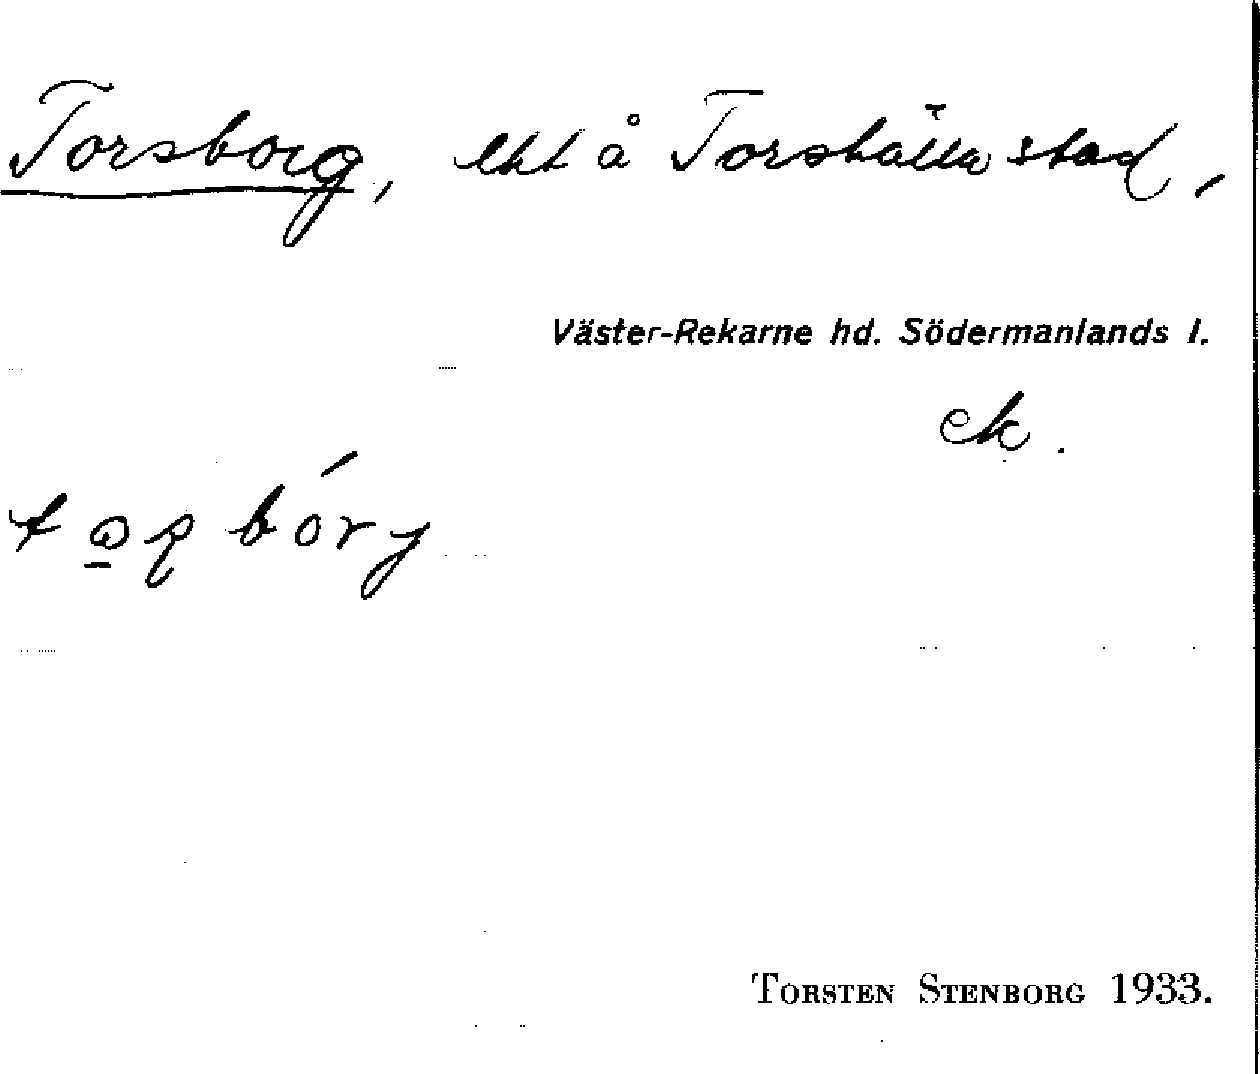 Torsborg, lht å Torshälla stad,
Väster-Rekarne hd. Södermanlands l.
ek.
TORSTEN STENBORG 1933.